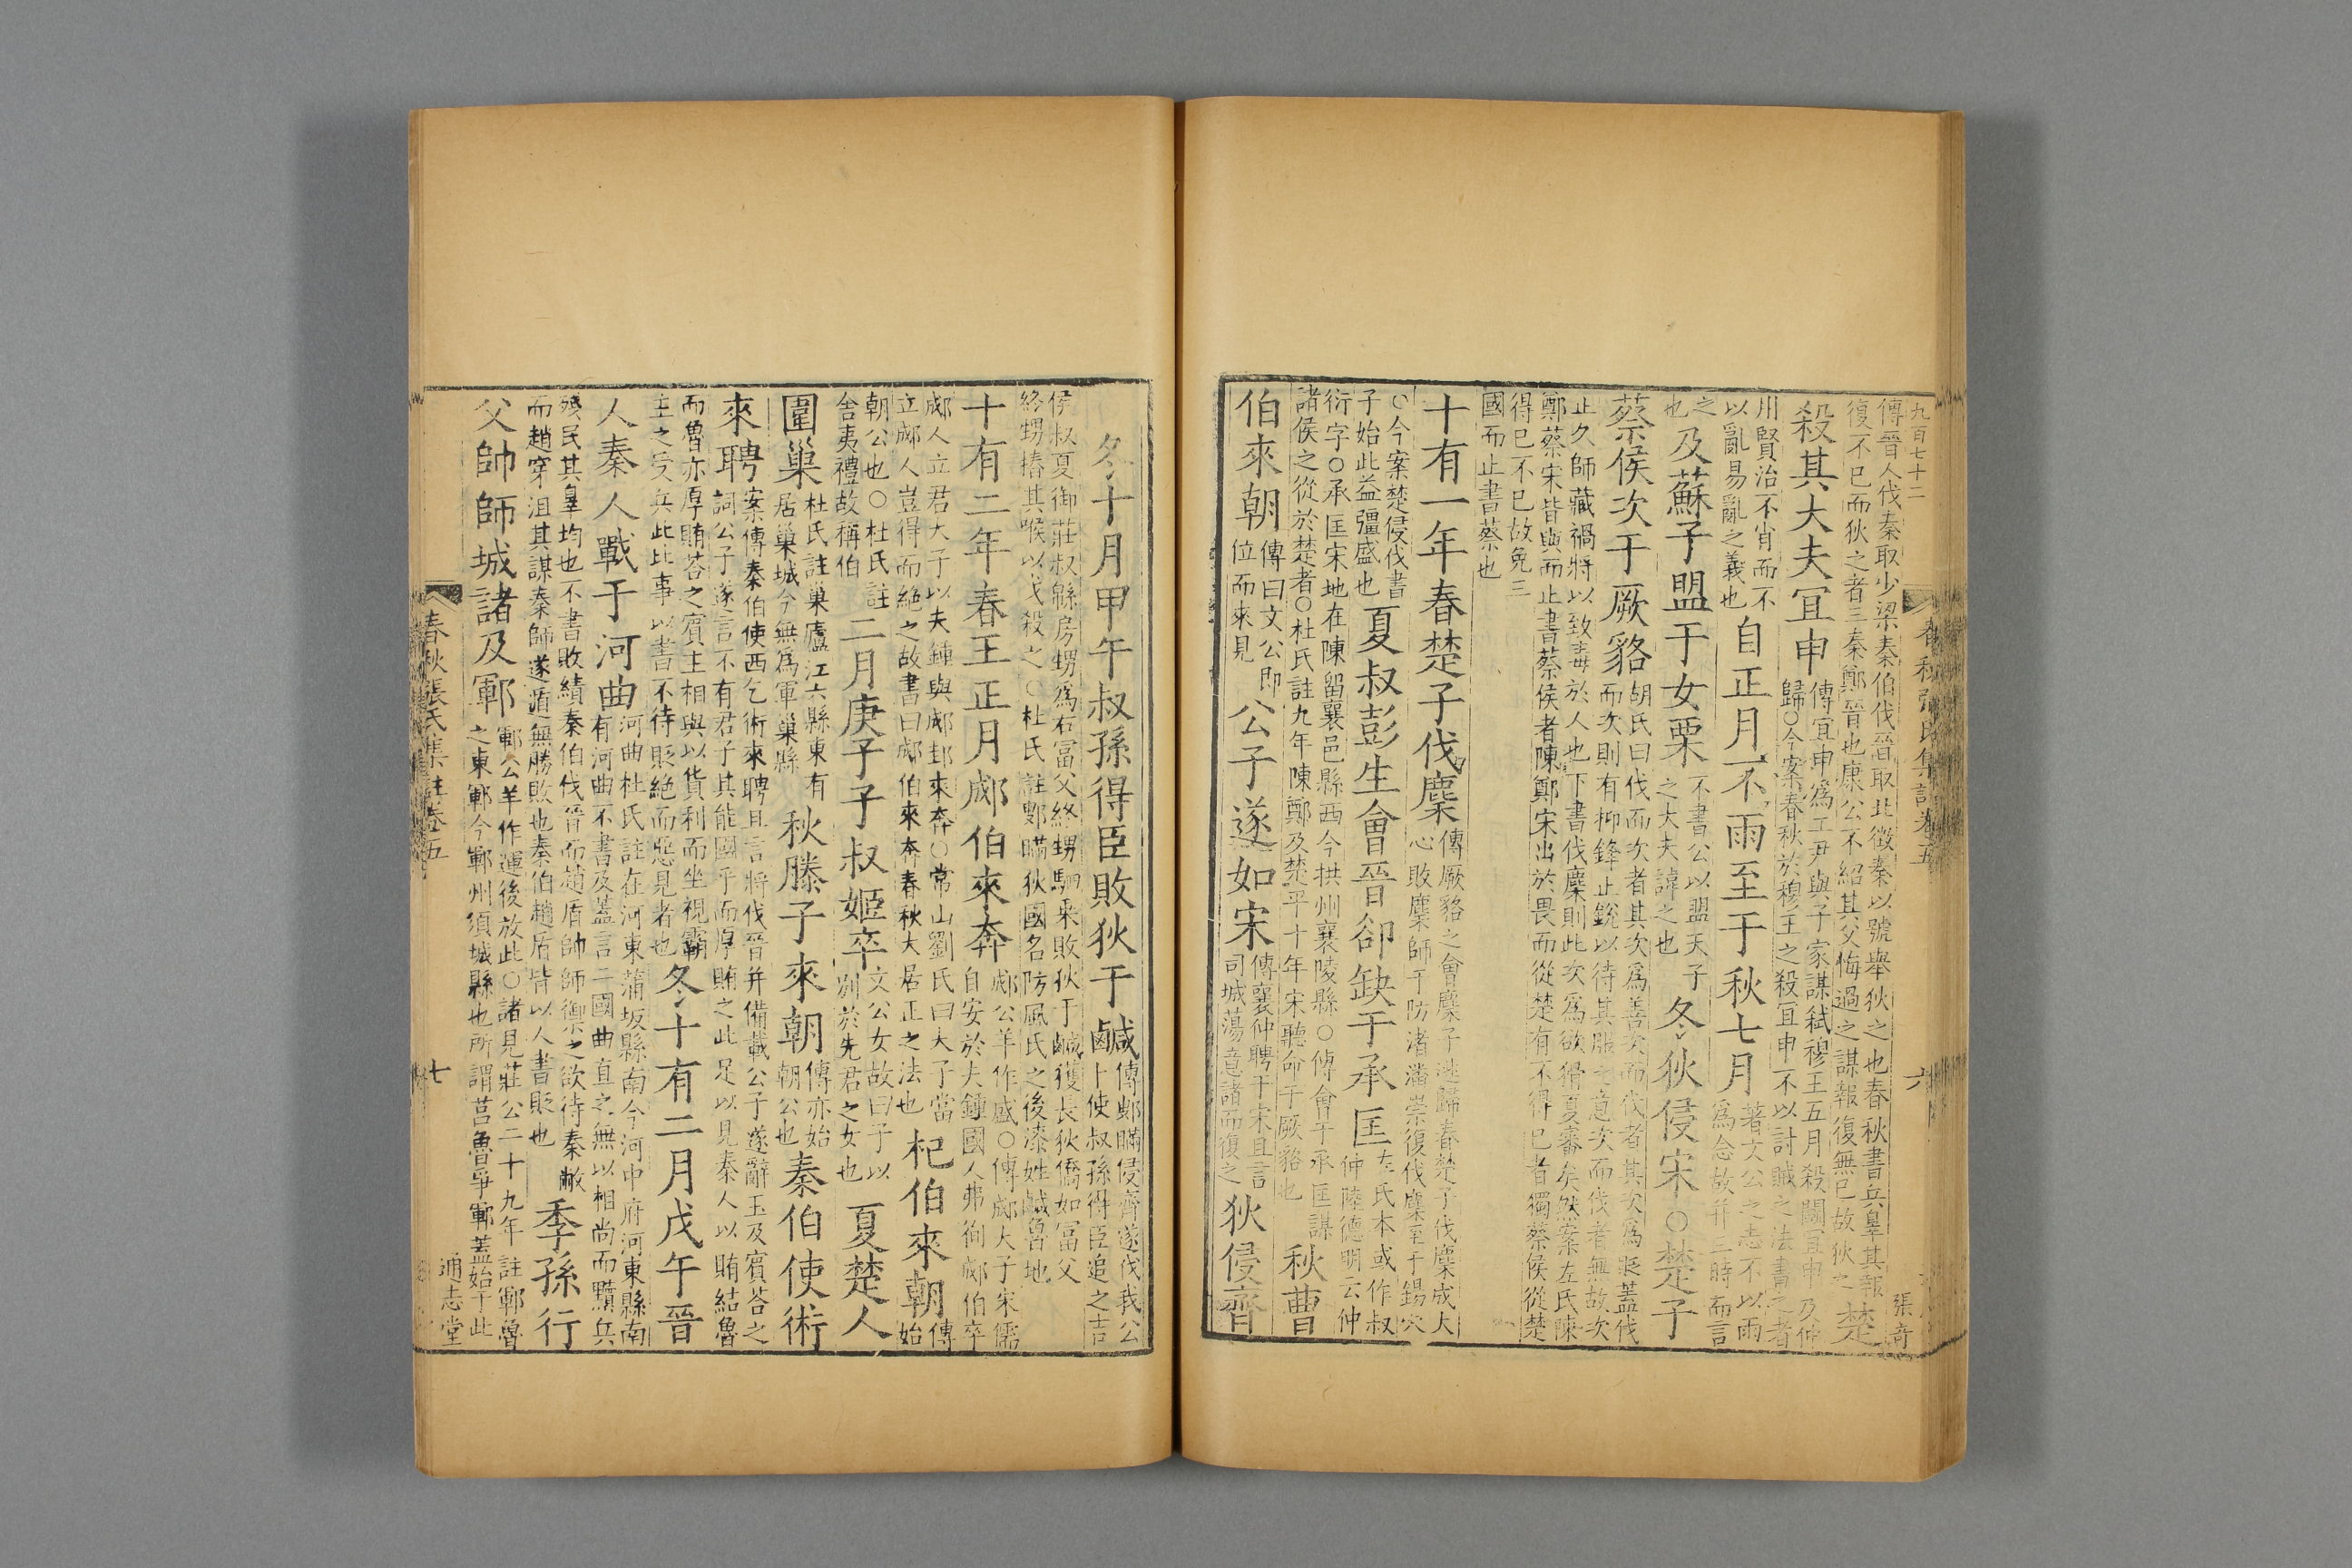 九百七十二
春秋張氏集註卷五
六
張奇
傳晉人伐秦取少梁秦伯伐晉取北徵秦以號舉狄之也春秋書兵辠其報
復不已而狄之者三秦鄭晉也康公不紹其父悔過之謀報復無已故狄之
楚
殺其大夫宜申
傳宜申為工尹與子家謀弒穆王五月殺鬭宜申及仲
歸○今案春秋於穆王之殺宜申不以討賊之法書之者
川賢治不肖而不
以亂易亂之義也
自正月不雨至于秋七月
著文公之志不以雨
為念故并三時而言
之
也
及蘇子盟于女栗
不書公以盟天子
之大夫諱之也
冬狄侵宋○楚子
蔡侯次于厥貉
胡氏曰伐而次者其次爲善次而伐者其次爲貶蓋伐
而次則有抑鋒止銳以待其服之意次而伐者無故次
止久師藏禍將以致毒於人也下書伐麇則此次爲欲猾夏審矣然案左氏陳
鄭蔡宋皆與而止書蔡侯者陳鄭宋出於畏而從楚有不得已者獨蔡侯從楚
得已不已故免三
國而止書蔡也
十有一年春楚子伐麇
傳厥貉之會麇子逃歸春楚子伐麇成大
心敗麇師于防渚潘崇復伐麇至于錫穴
○今案楚侵伐書
子始此益彊盛也
夏叔彭生會晉郤缺于承匡
左氏本或作叔
仲陸德明云仲
衍字○承匡宋地在陳留襄邑縣西今拱州襄陵縣○傳會于承匡謀
諸侯之從於楚者○杜氏註九年陳鄭及楚平十年宋聽命于厥貉也
秋曹
伯來朝
傳曰文公即
位而來見
公子遂如宋
傳襄仲聘于宋且言
司城蕩意諸而復之
狄侵齊
冬十月甲午叔孫得臣敗狄于鹹
傳鄋瞞侵齊遂伐我公
卜使叔孫得臣追之吉
侯叔夏御莊叔緜房甥爲右富父終甥駟乘敗狄于鹹獲長狄僑如富父
終甥摏其喉以戈殺之○杜氏註鄋瞞狄國名防風氏之後漆姓鹹魯地
十有二年春王正月郕伯來奔
郕公羊作盛○傳郕大子朱儒
自安於夫鍾國人弗徇郕伯卒
郕人立君大子以夫鍾與郕邽來奔○常山劉氏曰大子當
立郕人豈得而絶之故書曰郕伯來奔春秋大居正之法也
杞伯來朝
傳
始
朝公也○杜氏註
舍夷禮故稱伯
二月庚子子叔姬卒
文公女故曰子以
別於先君之女也
夏楚人
圍巢
杜氏註巢廬江六縣東有
居巢城今無爲軍巢縣
秋滕子來朝
傳亦始
朝公也
秦伯使術
來聘
案傳秦伯使西乞術來聘且言將伐晉并備載公子遂辭玉及賓荅之
詞公子遂言不有君子其能國乎而厚賄之此足以見秦人以賄結魯
而魯亦厚賄荅之賓主相與以貨利而坐視霸
主之受兵此比事以書不待貶絶而惡見者也
冬十有二月戊午晉
人秦人戰于河曲
河曲杜氏註在河東蒲坂縣南今河中府河東縣南
有河曲不書及蓋言二國曲直之無以相尚而黷兵
殘民其辠均也不書敗績秦伯伐晉而趙盾帥師禦之欲待秦敝
而趙穿沮其謀秦師遂遁無勝敗也秦伯趙盾皆以人書貶也
季孫行
父帥師城諸及鄆
鄆公羊作運後放此○諸見莊公二十九年註鄆魯
之東鄆今鄆州須城縣也所謂莒魯爭鄆蓋始于此
春秋張氏集註卷五
七
通志堂